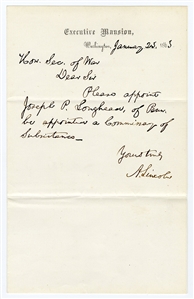 Executive Mansion,
Washington, January 25, 1863
Hon. Sec. of War
Dear Sir
Please appoint
Joseph P. of Penn.
be appointed a Commissary of
Subsistence—
Yours truly
A. Lincoln